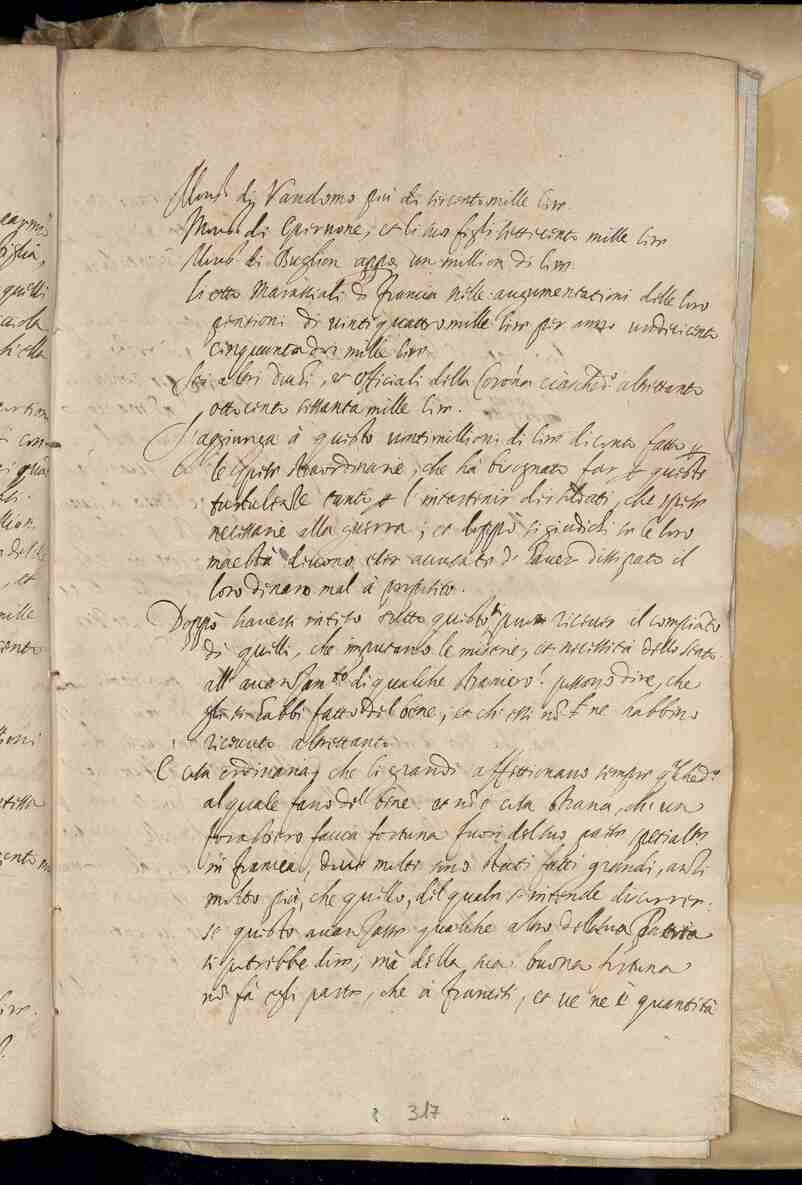 Mons.r di Vandomo piu di seicento mille lire.
Mons.r di Epernone, et li suoi figli settecento mille lire
Mons.r di Buglion appo un million di lire.
li otto Marassiali di Francia nelle augumentationi delle loro
pentioni di vinti quattro mille lire per anno
cinquanta doi mille lire.
altri Duchi, et officiali della Corona altrettanto
otto cento settanta mille lire.
S'aggiunga à questo venti millioni di lire di conto fatto
le spese straordinarie, che hà bisognato far queste
tanto l'intertenir soldati, che spese
necessarie alla guerra; et doppò si giudichi se le loro
maestà devono esser accusate di haver dissipato il
loro denaro mal à proposito.
Doppò haversi inteso tutto questo, ricever il
di quelli, che imputano le miserie, et necessità dello stato
all' avanzam.to di qualche straniero? possono dire, che
gli si habbi fatto del bene, et ch' essi nõ ne habbino
ricevuto altrettanto
E cosa ordinaria, che li grandi affettionano sempre
al quale fano del bene et nõ è cosa strana, che un
forastiero faccia fortuna fuori del suo paese
in francia, dove molti sono stati fatti grandi, anzi
molto più, che quello, del quale s'intende discorrer.
se questo avanzasse qualche altro della sua Patria
si potrebbe dire; mà della sua buona fortuna
nõ fà egli parte, che à francesi, et ve ne è quantità
317